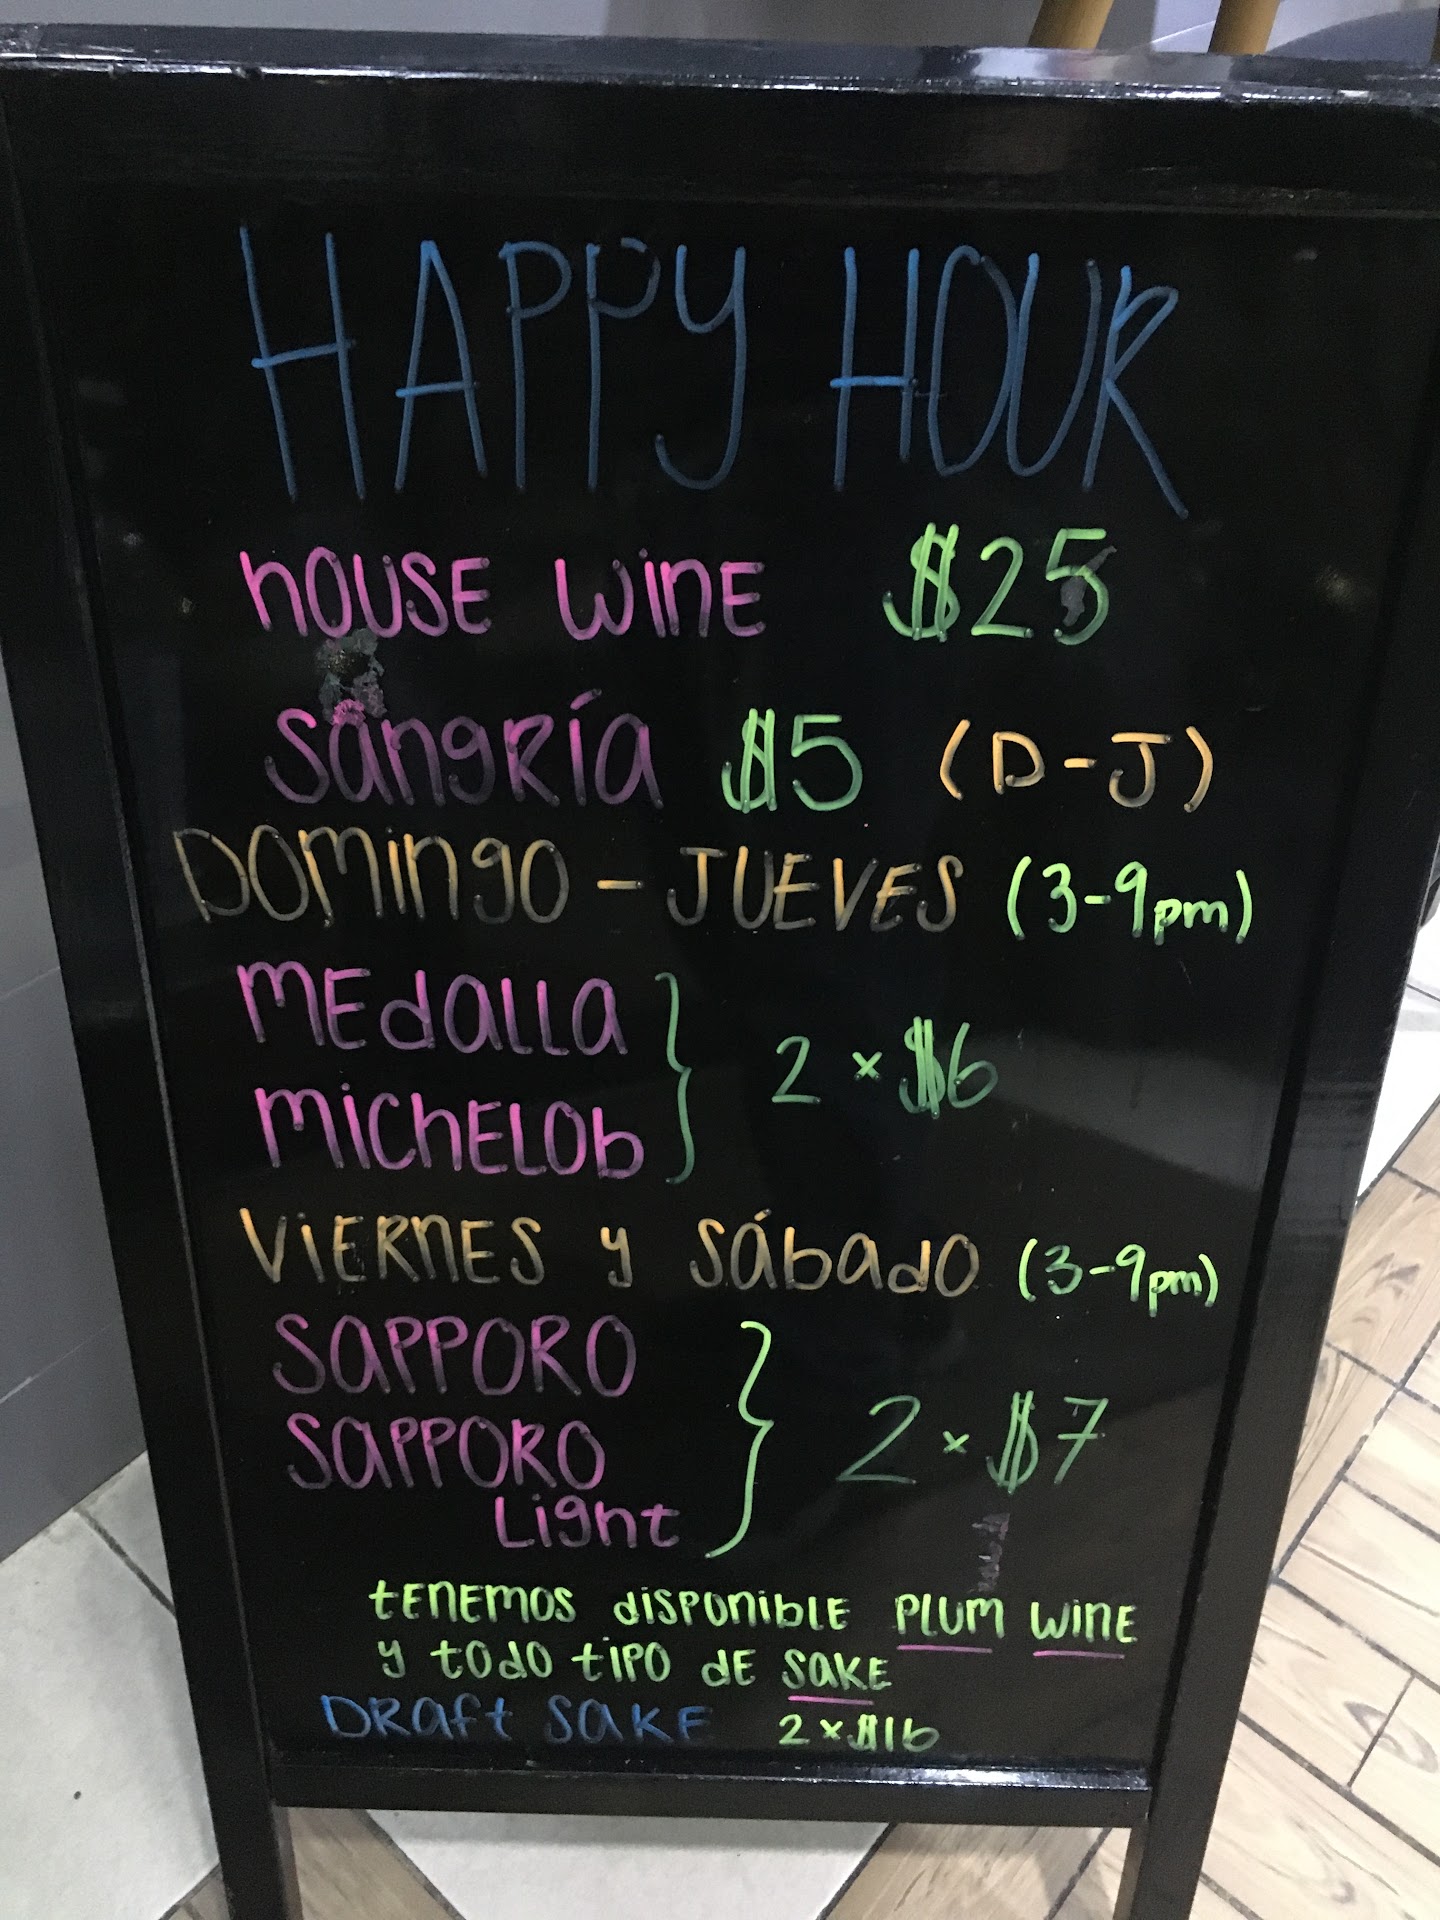 HAPPY HOUR
HOUSE WINE $25
SANGRÍA $5 (D-J)
DOMINGO - JUEVES (3-9pm)
MEDALLA
MICHELOB } 2 x $6
VIERNES Y SÁBADO (3-9pm)
SAPPORO
SAPPORO } 2 x $7
Light
TENEMOS DISPONIBLE PLUM WINE
Y TODO TIPO DE SAKE
DRAFT SAKE 2 x $16